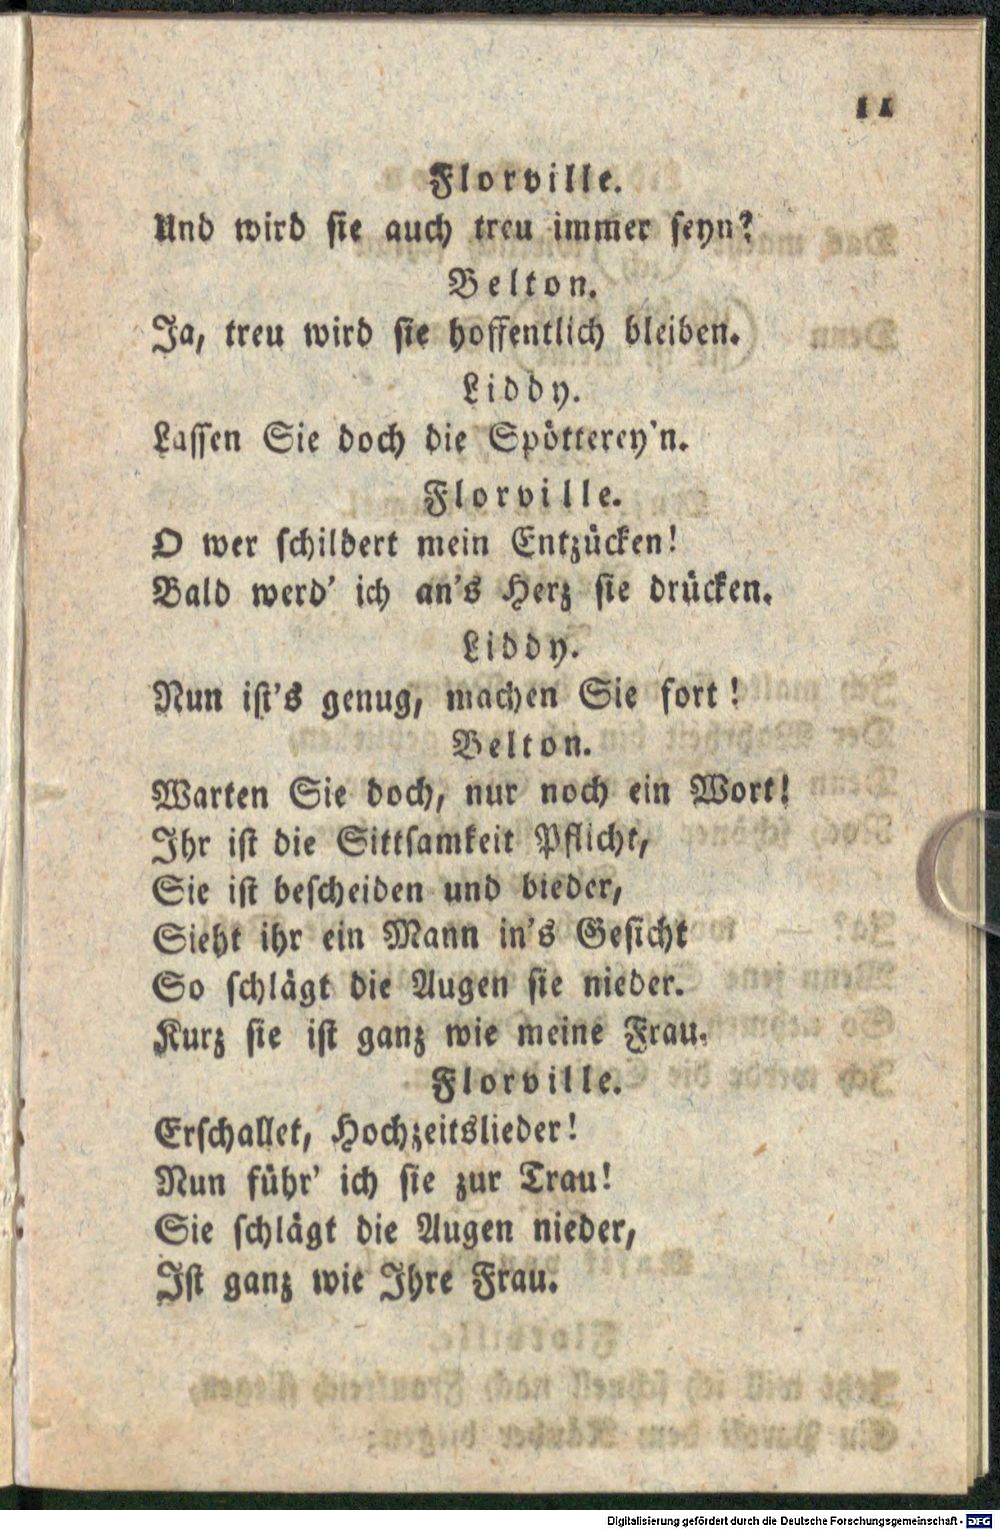 11
Florville.
Und wird sie auch treu immer seyn?
Belton.
Ja, treu wird sie hoffentlich bleiben.
Liddy.
Lassen Sie doch die Spötterey'n.
Florville.
O wer schildert mein Entzücken!
Bald werd' ich an's Herz sie drücken.
Liddy.
Nun ist's genug, machen Sie fort!
Belton.
Warten Sie doch, nur noch ein Wort!
Ihr ist die Sittsamkeit Pflicht,
Sie ist bescheiden und bieder,
Sieht ihr ein Mann in's Gesicht
So schlägt die Augen sie nieder.
Kurz sie ist ganz wie meine Frau.
Florville.
Erschallet, Hochzeitslieder!
Nun führ' ich sie zur Trau!
Sie schlägt die Augen nieder,
Ist ganz wie Ihre Frau.
Digitalisierung gefördert durch die Deutsche Forschungsgemeinschaft - DFG